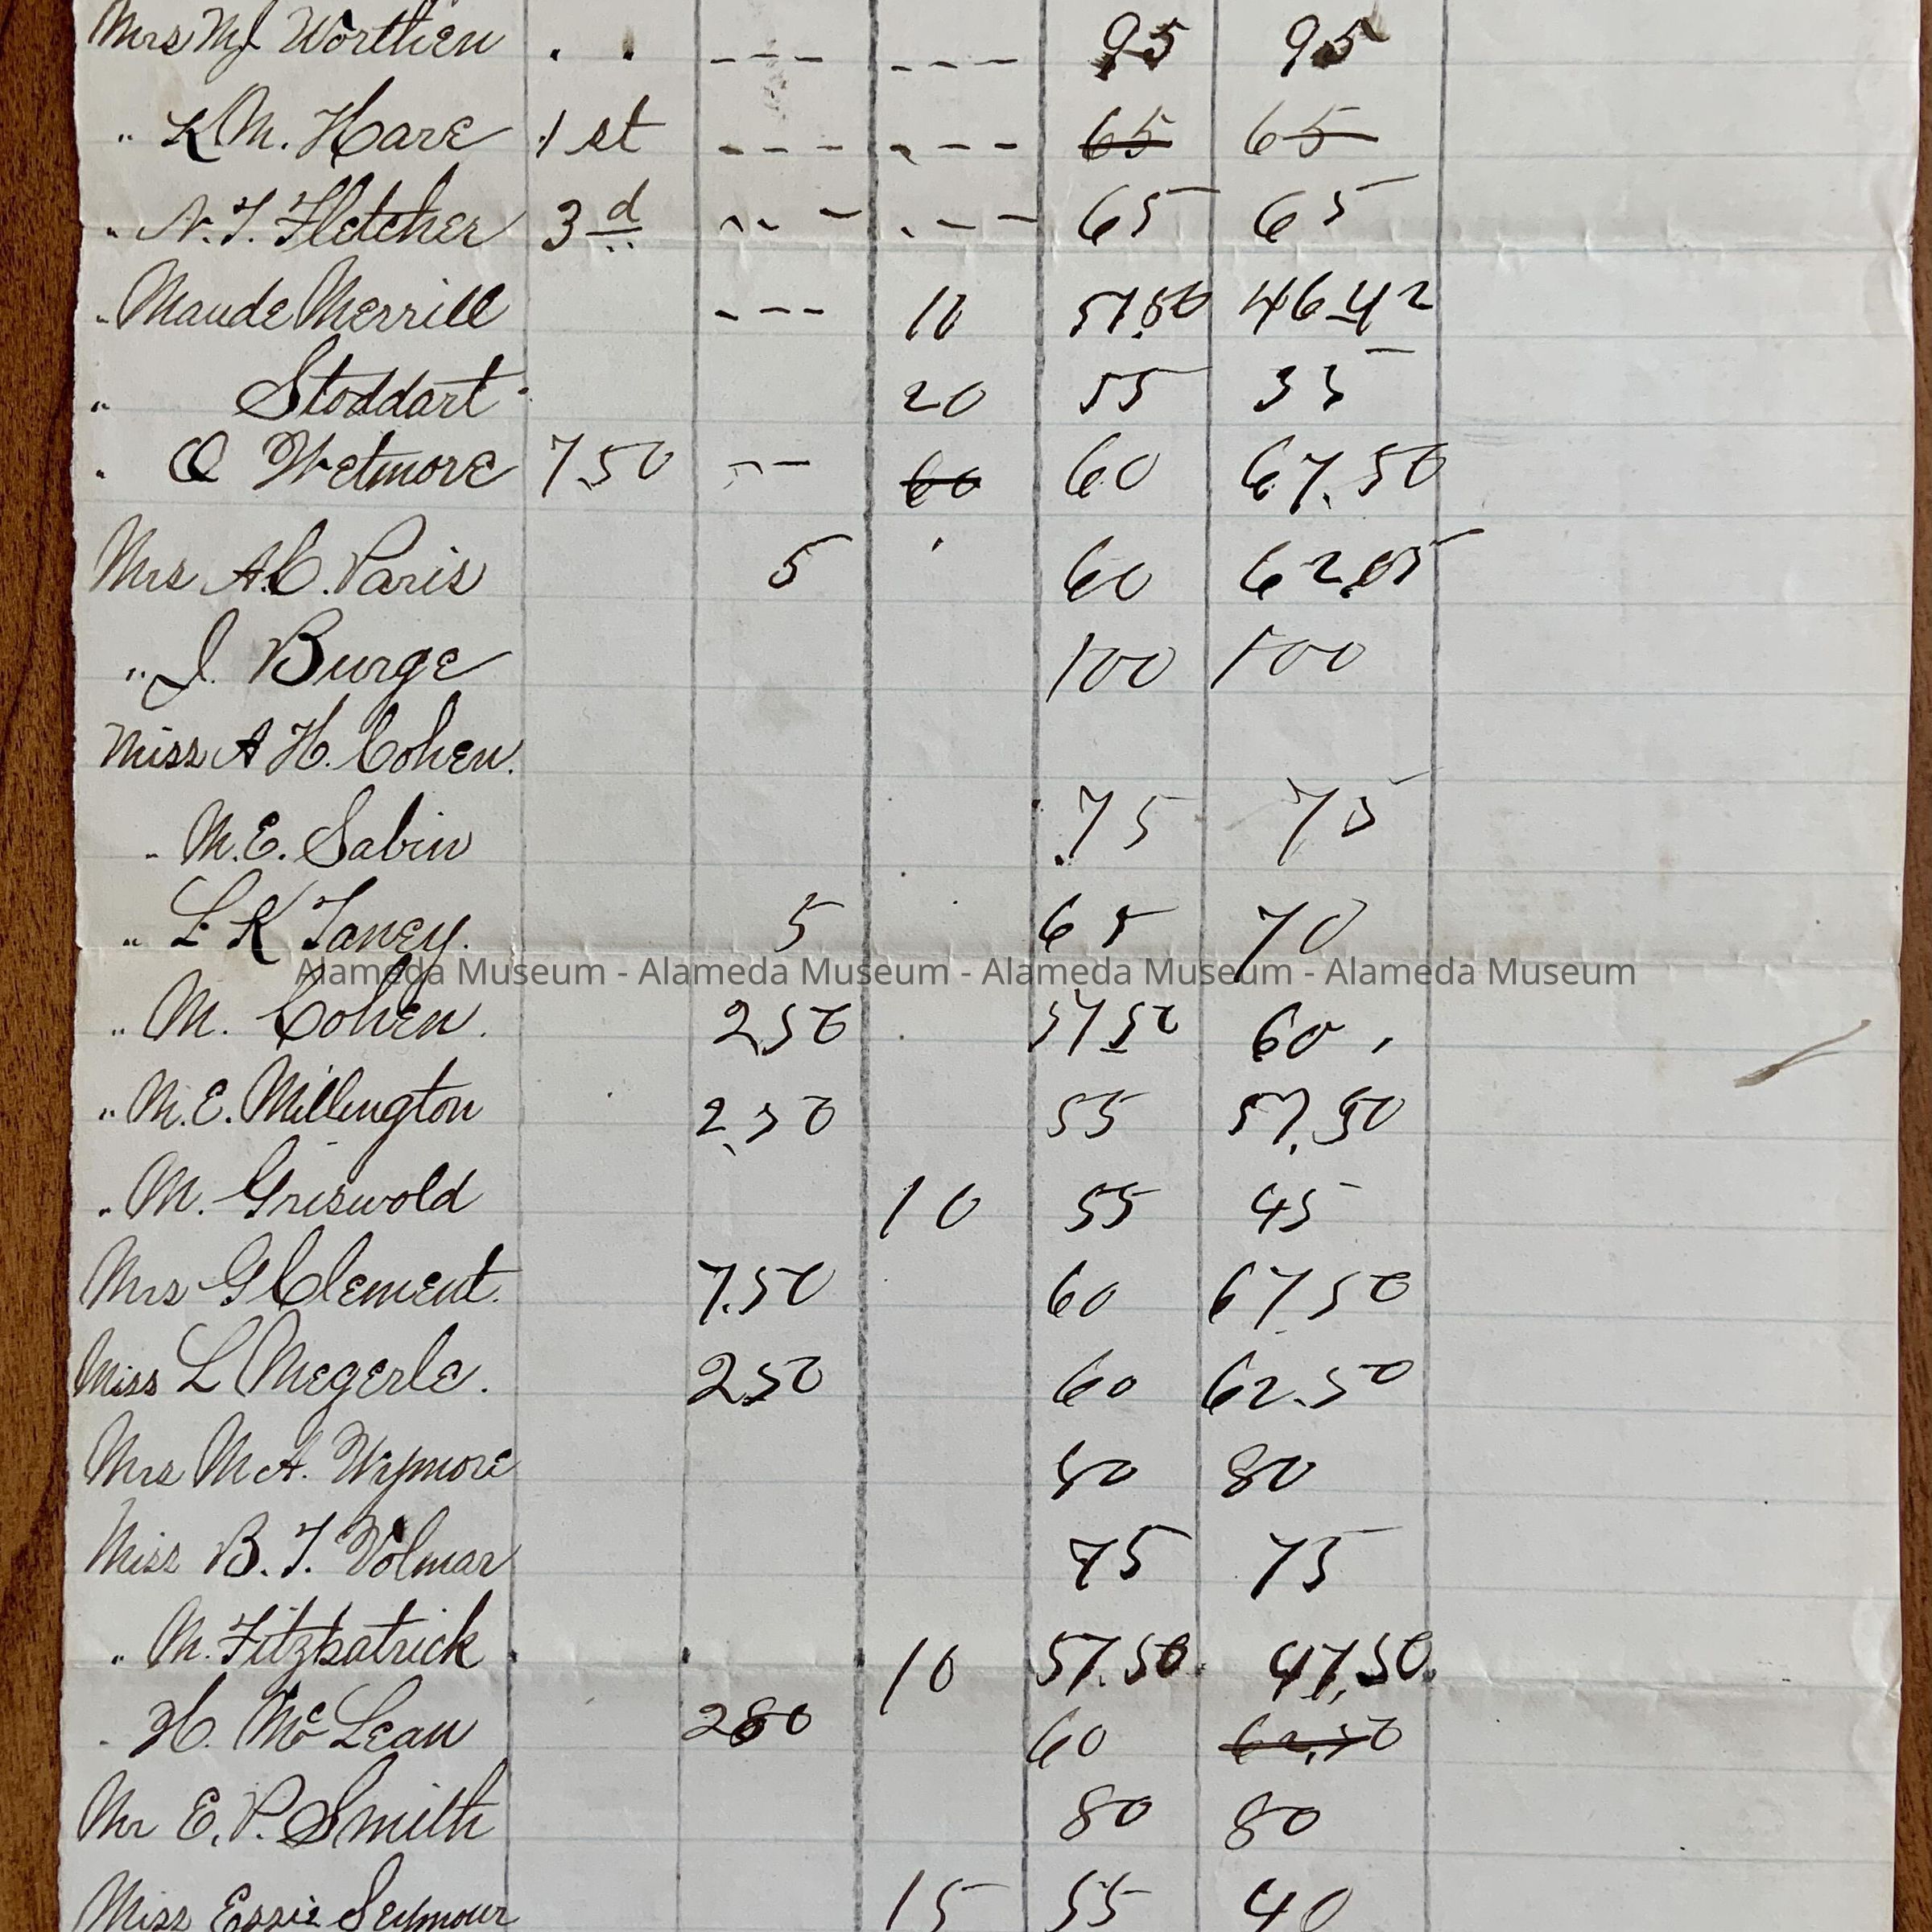 Mrs M J Worthen . . --- --- 95 95
" K M. Hare 1st --- --- 65 65
" N. T. Fletcher 3d --- --- 65 65
" Maude Merrill --- 10 57.50 46.42
" Stoddart 20 55 35
" O Wetmore 7.50 -- 60 60 67.50
Mrs A. C. Paris 5 60
" J. Burge 100 100
Miss A H. Cohen.
" M. E. Sabin 75 75
" L K Taney. 5 65 70
Alameda Museum - Alameda Museum - Alameda Museum - Alameda Museum
" M. Cohen. 2.50 57.50 60
" M. E. Millington 2.50 55 57.50
" M. Griswold 10 55 45
Mrs G Clement. 7.50 60 67.50
Miss L Megerle. 2.50 60 62.50
Mrs M A. Wymore 80 80
Miss B. T. Volmar 75 75
" M. Fitzpatrick 10 57.50 47.50
" H. McLean 2 50 60 62.50
Mr E. P. Smith 80 80
Miss Essie Seymour 15 55 40